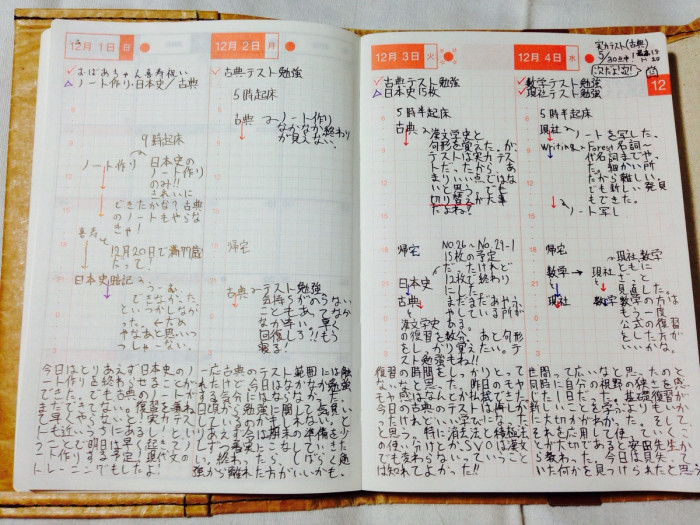 12月 1日 日
✓おばあちゃん喜寿祝い
△ノート作り・日本史/古典
9時起床
ノート作り
日本史の
ノート作り
のみ!!
きれいに
できたかな?古典
のノートもやらな
きゃ!
喜寿
12月20日で満77歳
だって。
日本史暗記
できなかった。
といつかしなか
った。
やなあと思いつつ
しゃーない。
今日はとりあえず日本史のノ
ート作りを終わらせることが
できた。でも古典のノートが
まだできてない。復習を兼ね
て早くやらないと!実力テス
トも近いことにあるし!とい
うことで明日は早く起きてノ
ート作りする予定!現代文の
トレーニングもしたよ!
12月 2日 月
古典テスト勉強
5時起床
古典
ノート作り
なかなか終わり
が見えない。
帰宅
古典
テスト勉強
気持ちがのらない
こともあってなか
なか辛い。早く
回復しろ!!もう
寝る!
一応古典のテスト範囲には触
れたけど今日はなかなか勉強
する気分にはならなかった。
日頃から勉強に関して気負い
しているのかもしれないし、
とりあえず今は期末の準備を少
しずつ、着実にこなしていき
たい。終わったらしばらく勉
強から離れた方がいいかも。
12月 3日 火
✓古典テスト勉強
△日本史15枚
5時半起床
古典
漢文学史と
句形を覚えた。が、
テストは実力テス
トだったから、あ
まりいい点ではな
いと思う。でも
切り替えが大事
だよね?
帰宅
日本史
No.26〜No.29-1
15枚の予定
だったけれど
12枚で終わり
にした。
古典
まだまだあやふ
やしている所が
ある。
漢文学史
の復習を数分。あと句形
をしっかり覚えたい。テ
スト勉強もね!!
復習の時間をしっかりとって
ないなと思った。昨日のモヤ
モヤ感はなんとか払拭できた。
今日の古典のテストは悔しか
ったけれどいい学びになった
と思う。特に消去法と積極法
の使い分けとか、SVOは漢文
でも変わらないっていうこと
は知れてよかった!!
12月 4日 水
実力テスト(古典)
5/30点中!
最高17
20
次だよ次!!
12
✓数学テスト勉強
✓現社テスト勉強
5時半起床
現社
ノートを写した。
Writing
Forest名詞〜
代名詞までや
った。細かい所
だから難しい。
でも新しい発見
もできた。
ノート写し
帰宅
数学
現社
現社、数学
ともに
さーっと
見直した。
現社
数学
数学の方は
もう一度
公式の復習
をした方が
いいかな。
世間って広いなと思ったのと
同時に自分の視野の狭さを感
じた1日だった。基礎復習が
新しいことを学ぶよりもいか
に大切かがわかった。そして
それを応用して使っていくこ
とが大切であると安田先生か
ら教わった。今日は見失って
いた何かを見つけられたと思う